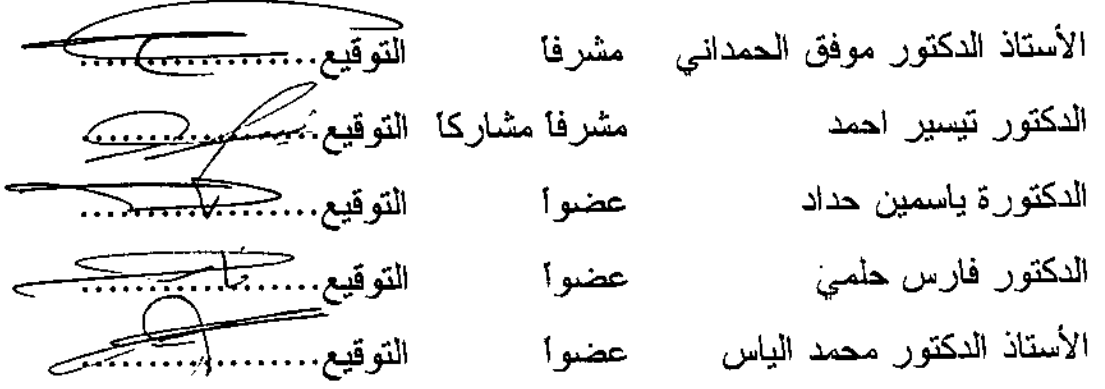 الأستاذ الدكتور موفق الحمداني مشرفاً التوقيع..................
الدكتور تيسير احمد مشرفاً مشاركاً التوقيع..................
الدكتورة ياسمين حداد عضواً التوقيع..................
الدكتور فارس حلمي عضواً التوقيع..................
الأستاذ الدكتور محمد الياس عضواً التوقيع..................